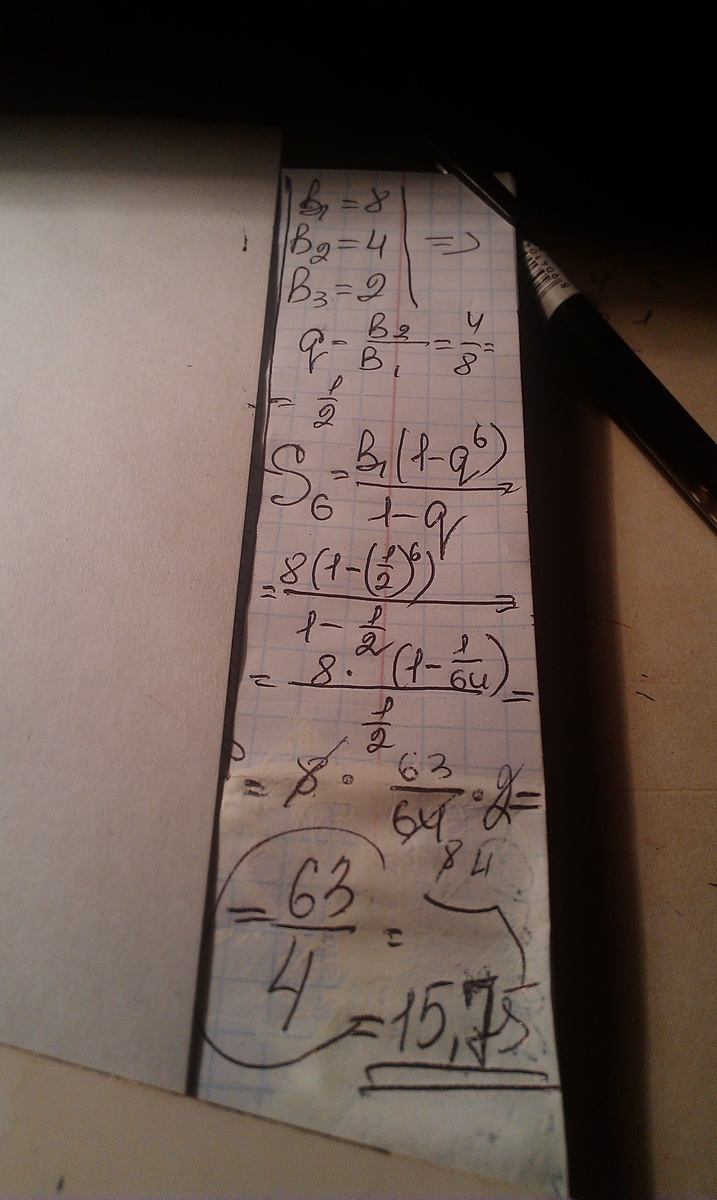 B₁ = 8
B₂ = 4 =>
B₃ = 2
q = B₂/B₁ = 4/8 =
= 1/2
S₆ = B₁(1-q⁶)/1-q
= 8(1-(1/2)⁶)/1-1/2 =
= 8·(1-1/64)/1/2 =
= 8 · 63/64 · 2 =
8 4
= 63/4 =
= 15,75